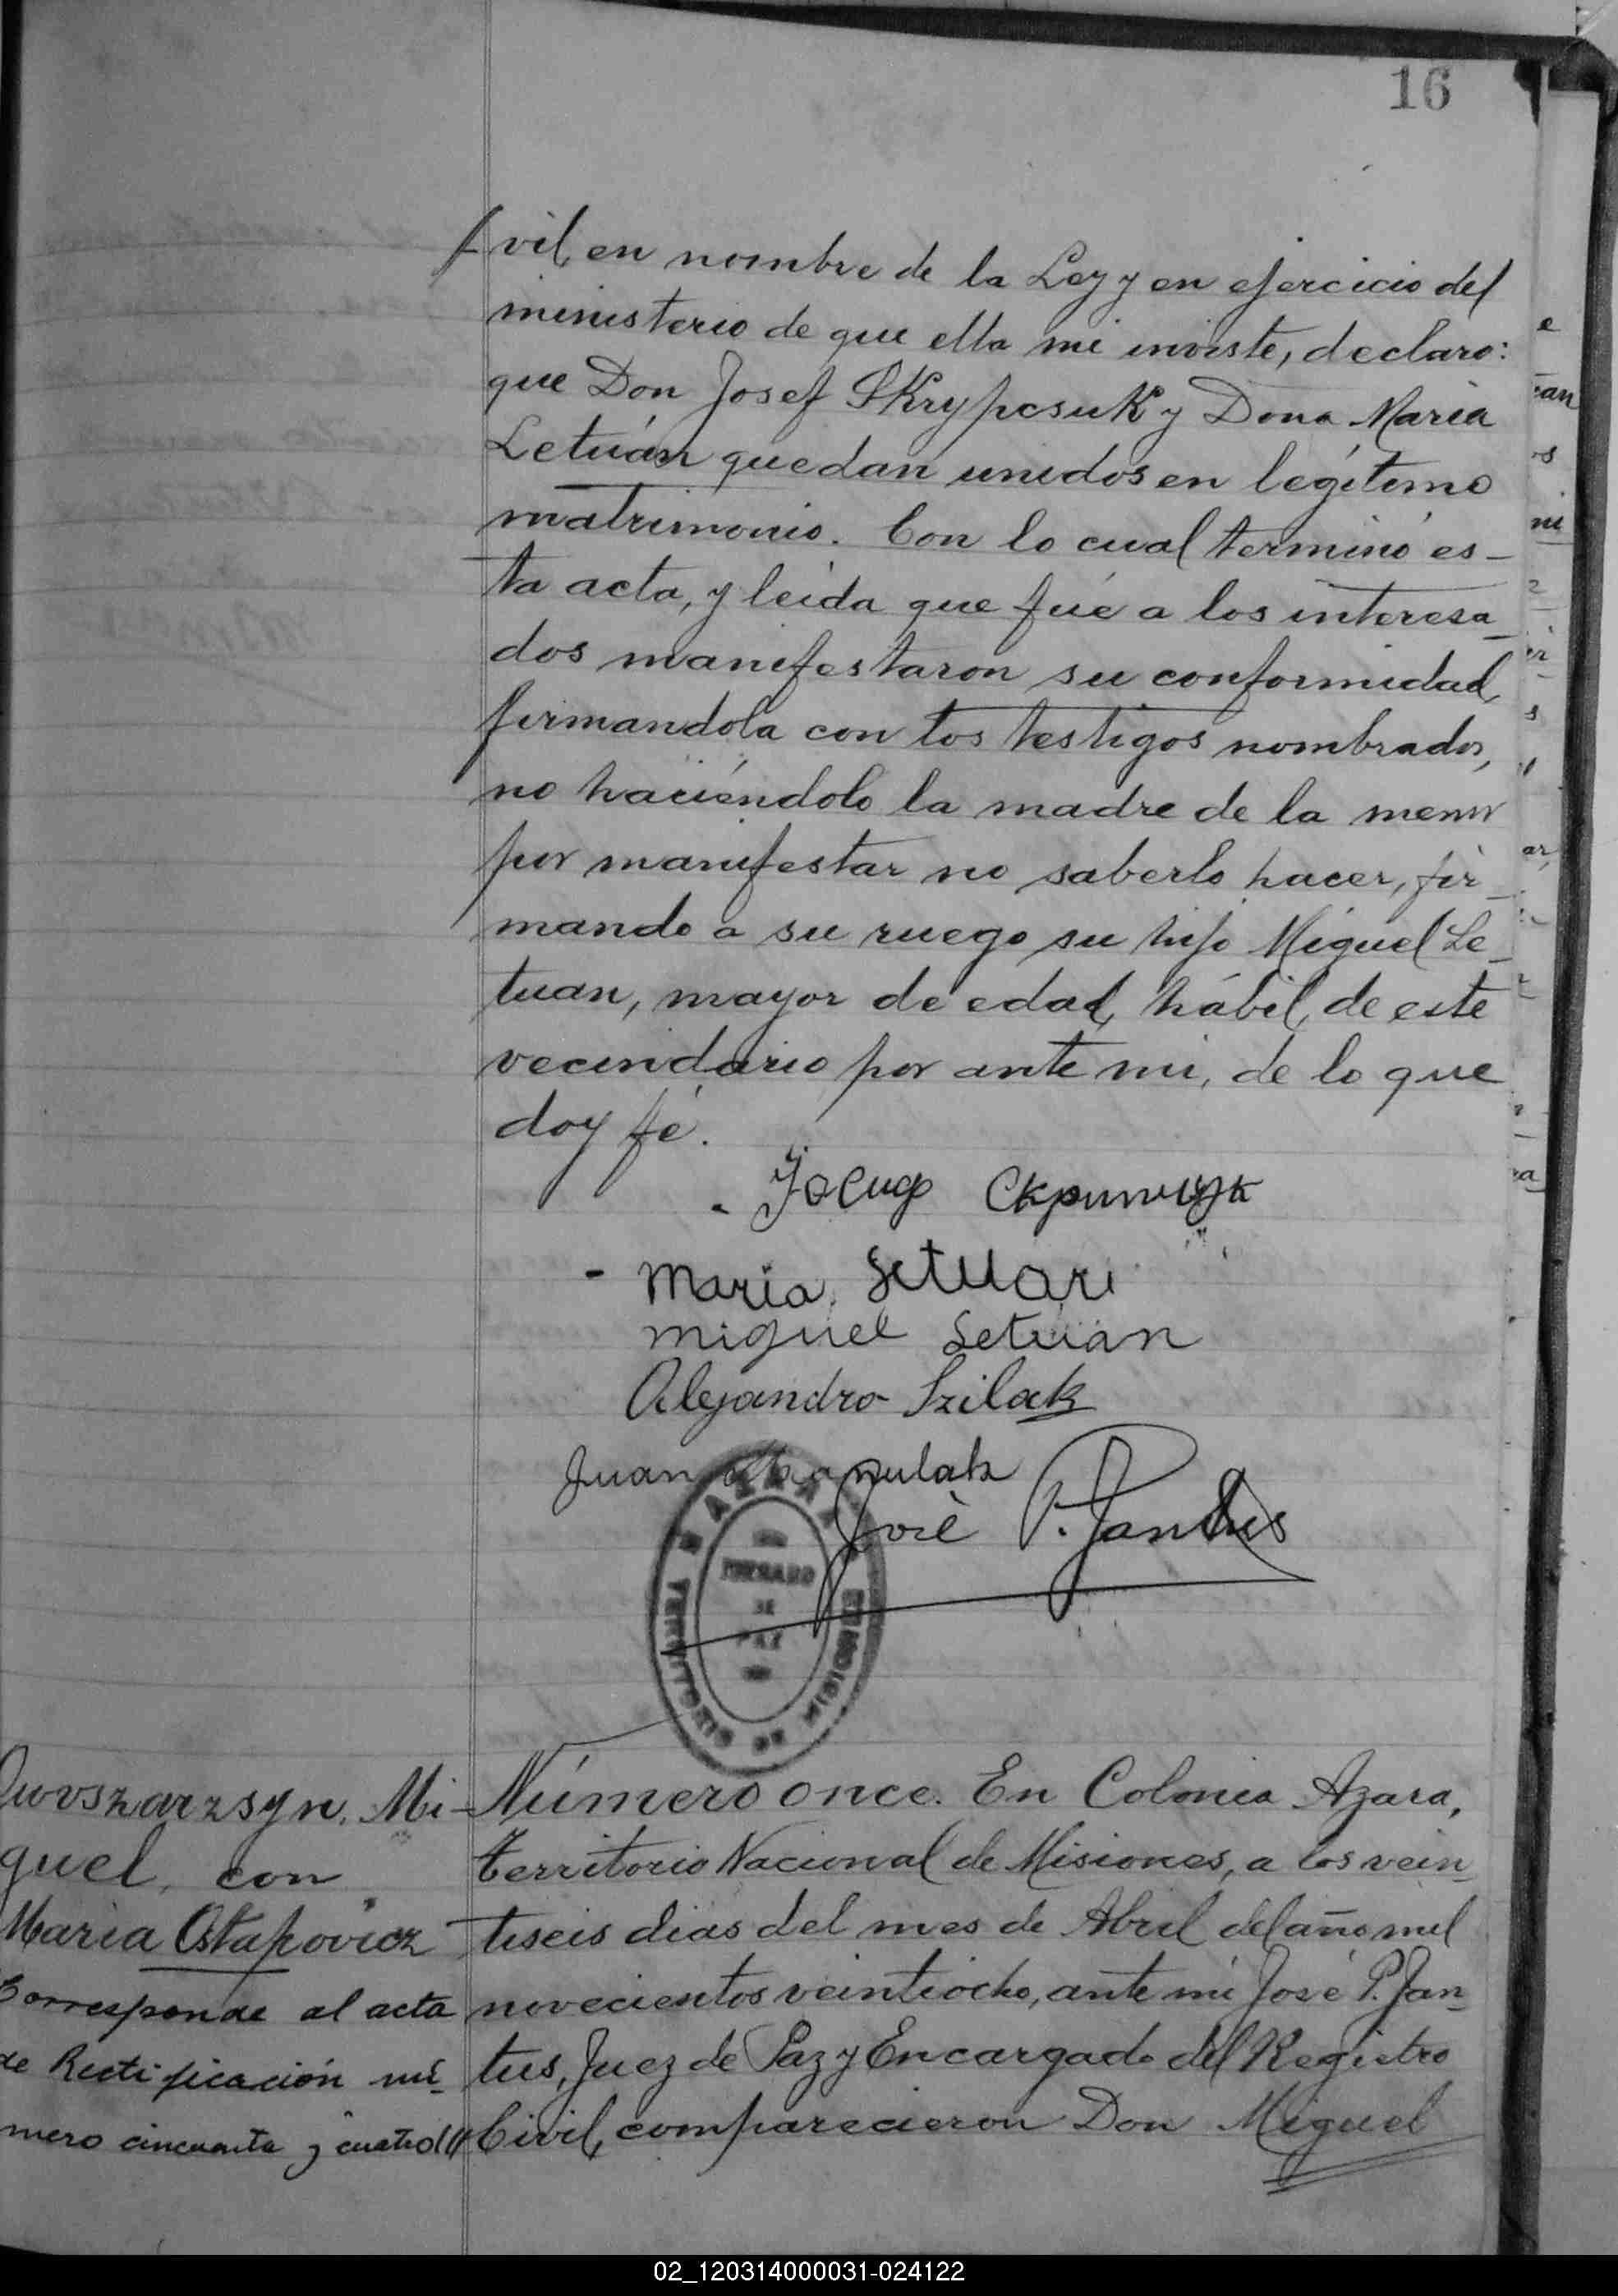 16
vil, en nombre de la Ley y en ejercicio del
ministerio de que ella me inviste, declaro:
que Don Josef Skrypcsuk y Dona Maria
Letuán quedan unidos en legítimo
matrimonio. Con lo cual terminó es-
ta acta, y leida que fué a los interesa-
dos manifestaron su conformidad,
firmandola con los testigos nombrados,
no haciéndolo la madre de la menor
por manifestar no saberlo hacer, fir-
mando a su ruego su hijo Miguel Le-
tuan, mayor de edad, hábil, de este
vecindario por ante mi, de lo que
doy fé.
Йосиф Скрипчук
Maria Letuan
Miguel Letuan
Alejandro Szilak
Juan
José P. Jantus
AZARA
TERRITORIO DE MISIONES
JUZGADO
DE
PAZ
Mi-
guel, con
Maria Ostapovicz
Corresponde al acta
de Rectificación nú-
mero cincuenta y cuatro//
Número once. En Colonia Azara,
territorio Nacional de Misiones, a los vein-
tiseis dias del mes de Abril del año mil
novecientos veintiocho, ante mi José P. Jan-
tus, Juez de Paz y Encargado del Registro
Civil, comparecieron Don Miguel
02_120314000031-024122